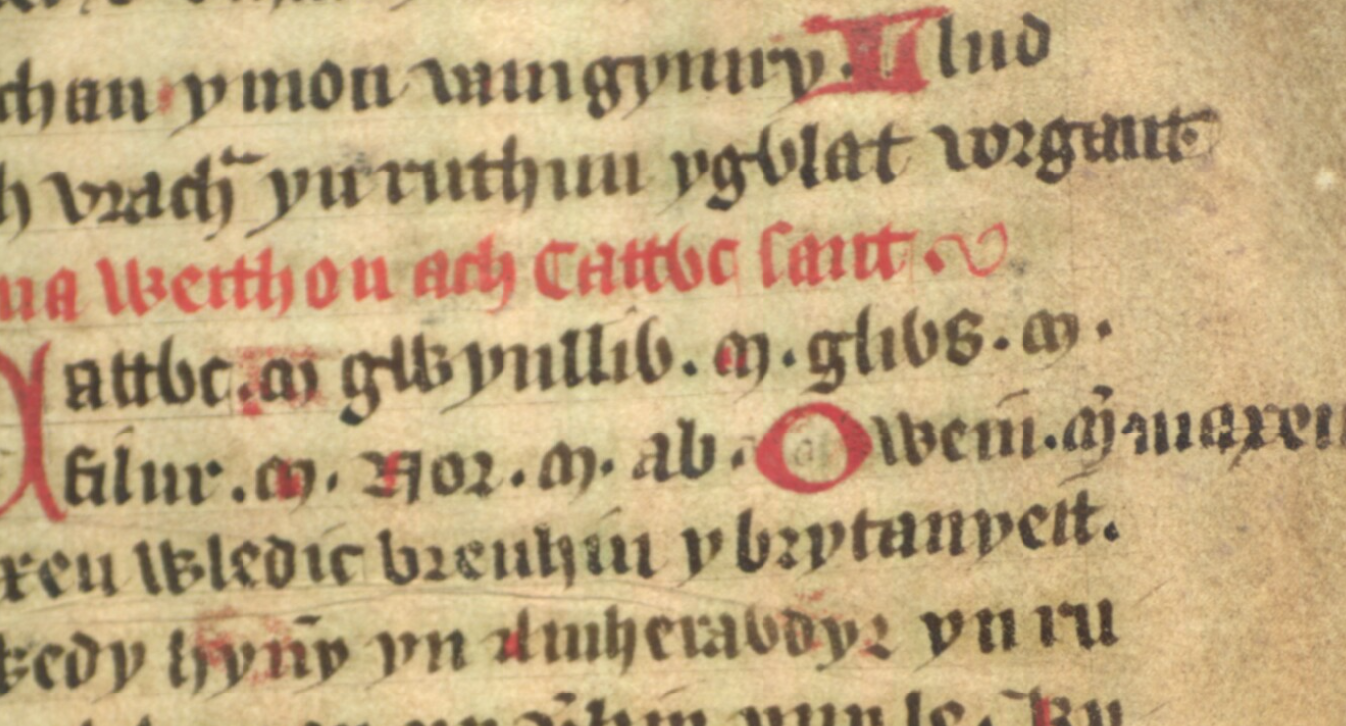 ymon vamgymry. Llud
vrach yn ruthun ygvlat vorgant
Weithon ach Cattvc sant
attvc. m̃ gỽynlliỽ. m̃. gliỽs. m̃.
filur. m̃. Nor. m̃. ab. Owein. m̃. maxen
xen wledic brenhin y brytanyeit.
wedy hynny yn amheravdyr yn ru